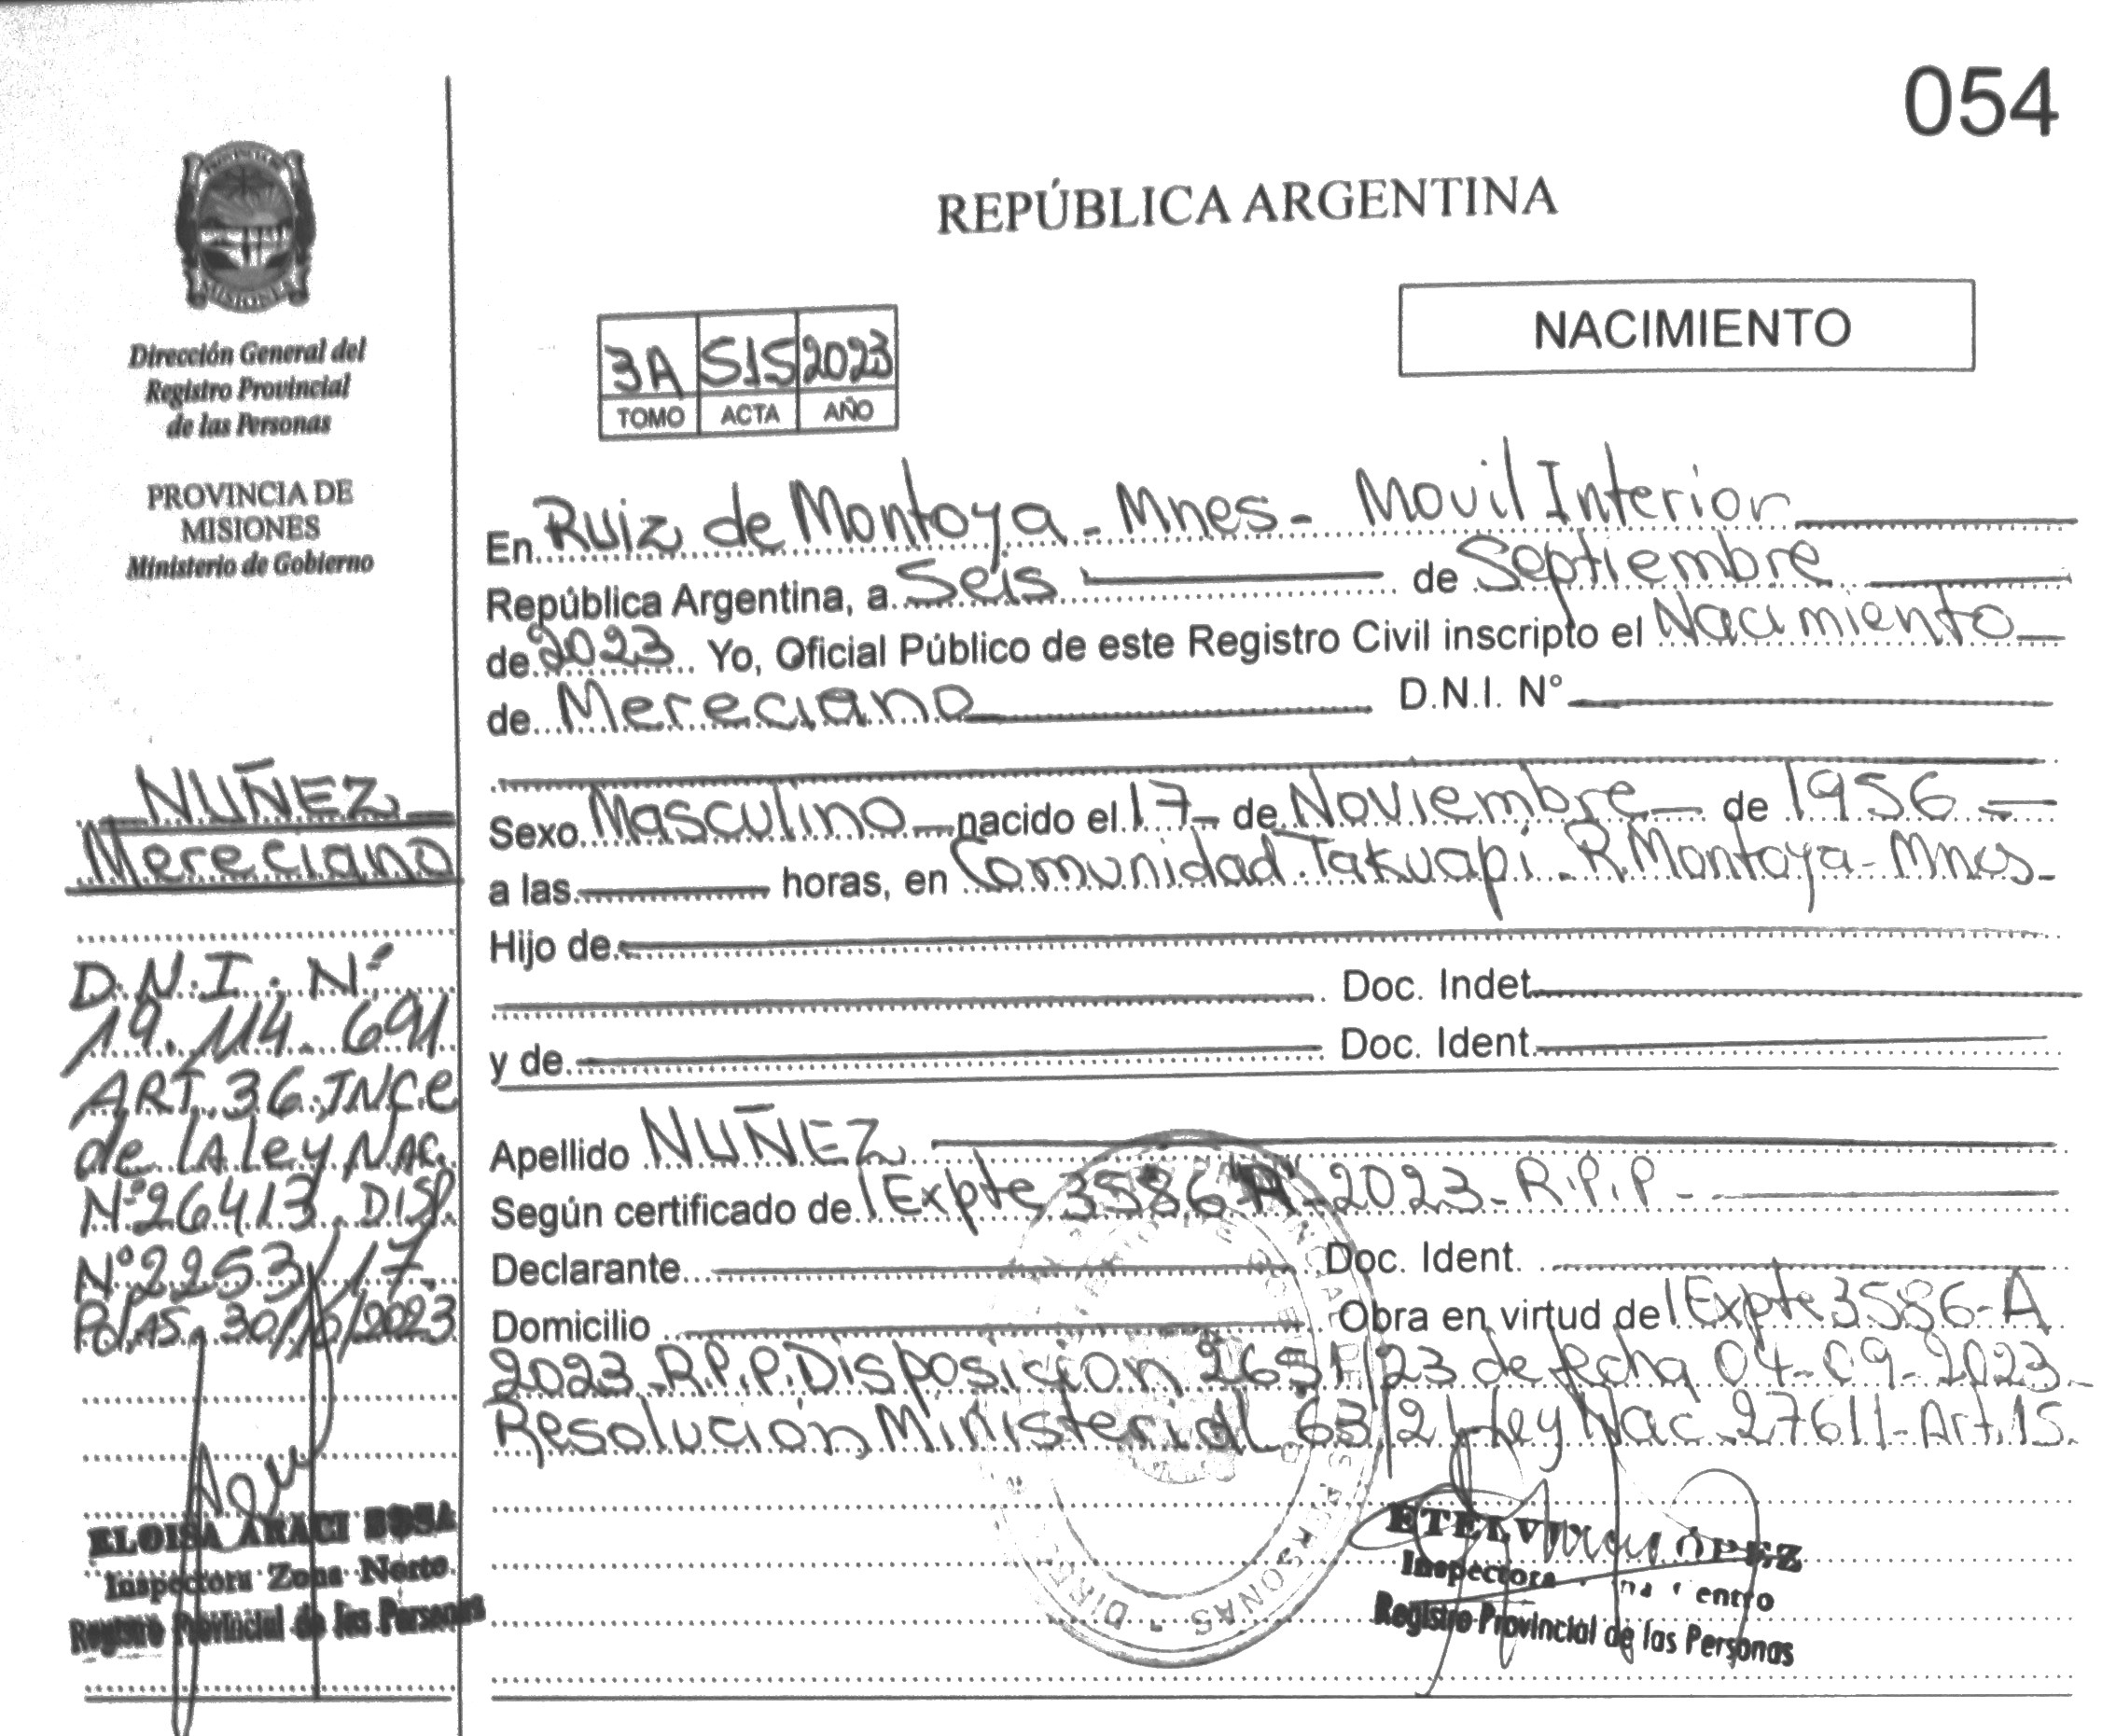 054
REPÚBLICA ARGENTINA
NACIMIENTO
Dirección General del
Registro Provincial
de las Personas
PROVINCIA DE
MISIONES
Ministerio de Gobierno
3A 515 2023
TOMO ACTA AÑO
En Ruiz de Montoya - Mnes - Movil Interior
República Argentina, a Seis de Septiembre
de 2023 Yo, Oficial Público de este Registro Civil inscripto el Nacimiento
de Mereciano D.N.I. N°
Sexo Masculino nacido el 17 de Noviembre de 1956
a las horas, en Comunidad Takuapi - R. Montoya - Mnes -
Hijo de
Doc. Indet
y de Doc. Ident.
Apellido NUÑEZ
Según certificado de Expte 3586 "A" - 2023 - R.P.P -
Declarante Doc. Ident.
Domicilio Obra en virtud de Expte 3586 - A
2023 - R.P.P. Disposicion 2651/23 de fecha 04-09-2023
Resolución Ministerial 63/21 Ley Nac 27611 - Art. 15.
ETELVINA LÓPEZ
Inspectora Centro
Registro Provincial de las Personas
NUÑEZ
Mereciano
D.N.I. N°
19.114.691
ART. 36 INC. e
de LA ley NAC.
N° 26413. DISP.
N° 2253/17.
Pdas. 30/ /2023
ELOISA ARACI SOSA
Inspectora Zona Norte
Registro Provincial de las Personas